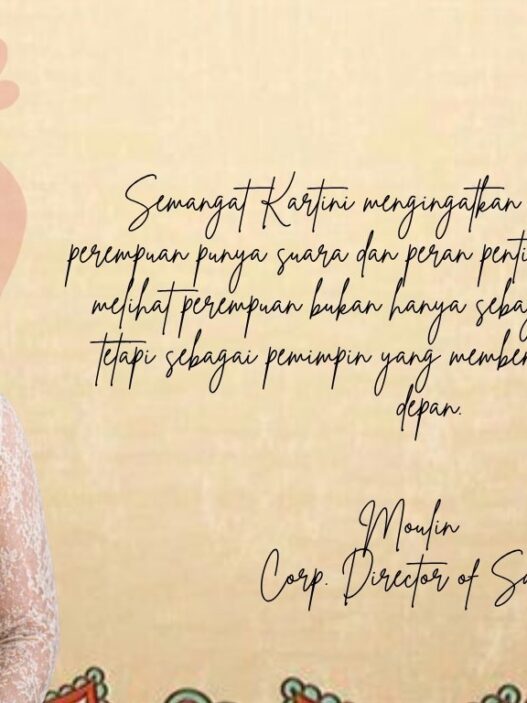 Semangat Kartini mengingatkan
perempuan punya suara dan peran
melihat perempuan bukan hanya
tetapi sebagai pemimpin yang
depan.
Moulin
Corp. Director of